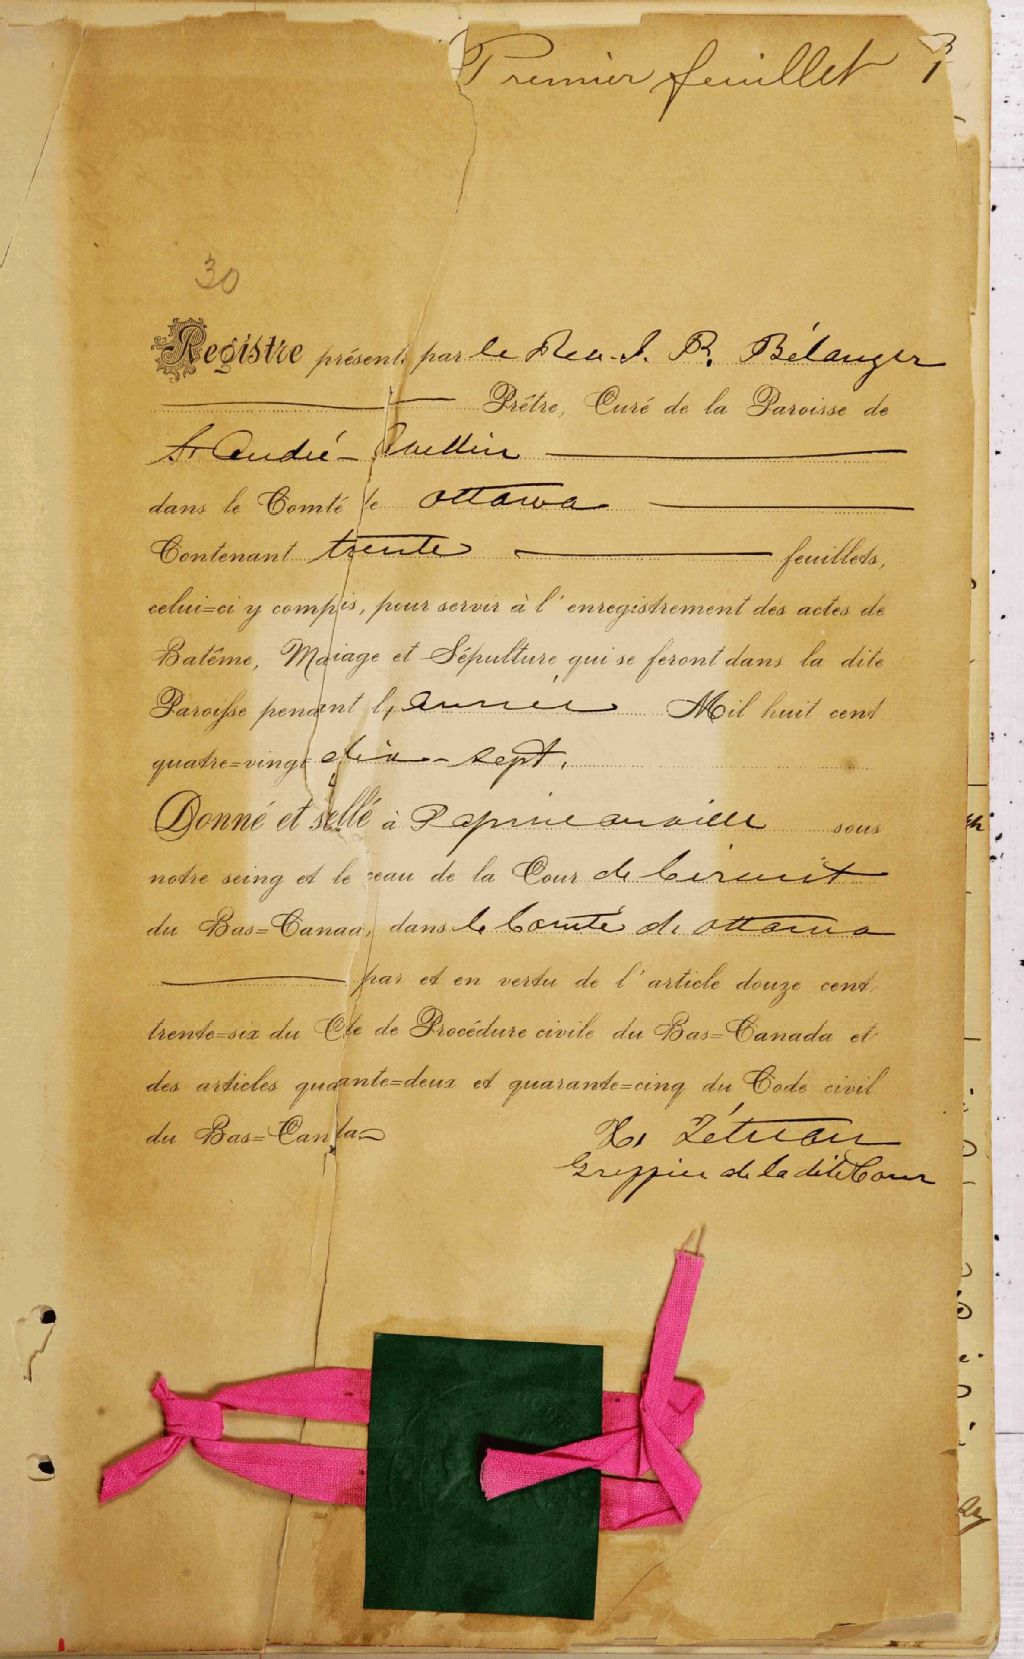 Premier feuillet 1
30
Registre présent par le Rev. J. R. Bélanger
Prêtre, Curé de la Paroisse de
St André-Avellin
dans le Comté de Ottawa
Contenant trente feuillets,
celui=ci y compis, pour servir à l'enregistrement des actes de
Batême, Maiage et Sépulture qui se feront dans la dite
Paroisse penant l, année Mil huit cent
quatre=vingt dix-sept.
Donné et sellé à Papineauville sous
notre seing et le sceau de la Cour de Circuit
du Bas=Canada, dans le Comté de Ottawa
par et en vertu de l'article douze cent
trente=six du Code de Procédure civile du Bas=Canada et
des articles quarante=deux et quarante=cinq du Code civil
du Bas=Canada
Greffier de la dite Cour